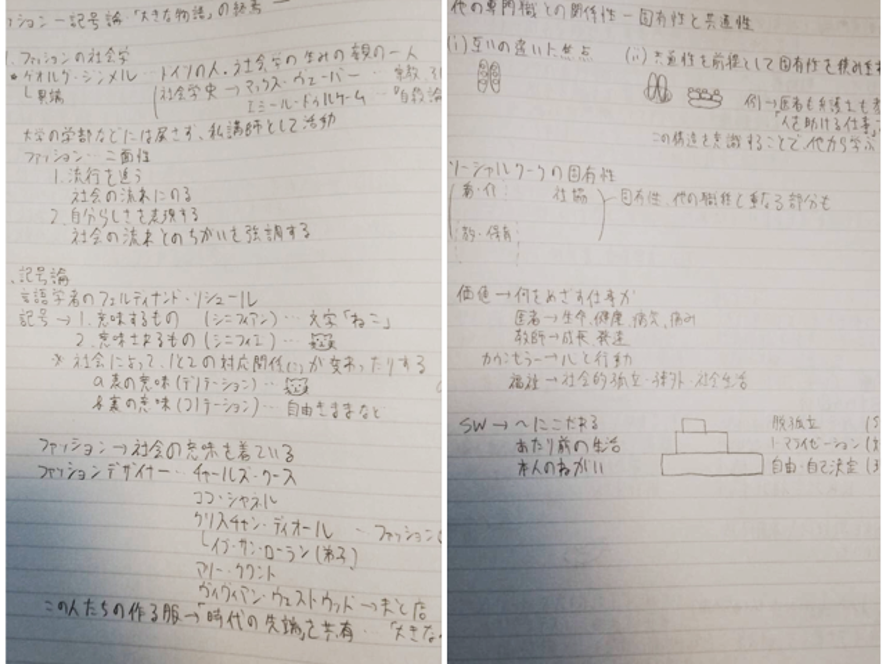 ション－記号論・「大きな物語」の終焉－
1. ファッションの社会学
・ゲオルグ・ジンメル … ドイツの人・社会学の生みの親の一人
└異端 社会学史→マックス・ヴェーバー … 宗教,
エミール・ドゥルケーム … 『自殺論
大学の学部などには属さず、私講師として活動
ファッション … 二面性
1. 流行を追う
社会の流れにのる
2. 自分らしさを表現する
社会の流れとのちがいを強調する
記号論
言語学者のフェルディナンド・ソシュール
記号→1. 意味するもの (シニフィアン) … 文字「ねこ」
2. 意味されるもの (シニフィエ) …
※ 社会によって、1と2の対応関係(:)が変わったりする
a 表の意味 (デノテーション) …
b 裏の意味 (コノテーション) … 自由きままなど
ファッション→社会の意味を着ている
ファッションデザイナー … チャールズ・ワース
ココ・シャネル
クリスチャン・ディオール … ファッション
└イブ・サン・ローラン (弟子)
マリー・クワント
ヴィヴィアン・ウェストウッド→
この人たちの作る服→「時代の先端」を共有 … 「大きな
他の専門職との関係性－固有性と共通性
(i) 互いの違いに焦点 (ii) 共通性を前提として固有性を積み重
例→医者も弁護士も
「人を助ける仕事」
この構造を意識することで他から学ぶ
ソーシャルワークの固有性
社協 固有性、他の職種と重なる部分も
教・保育
価値→何をめざす仕事か
医者→生命,健康,病気,痛み
教師→成長,発達
カウンセラー→心と行動
福祉→社会的孤立・疎外・社会生活
SW→〜にこたえる 脱孤立
あたり前の生活 ノーマライゼーション
本人のねがい 自由・自己決定